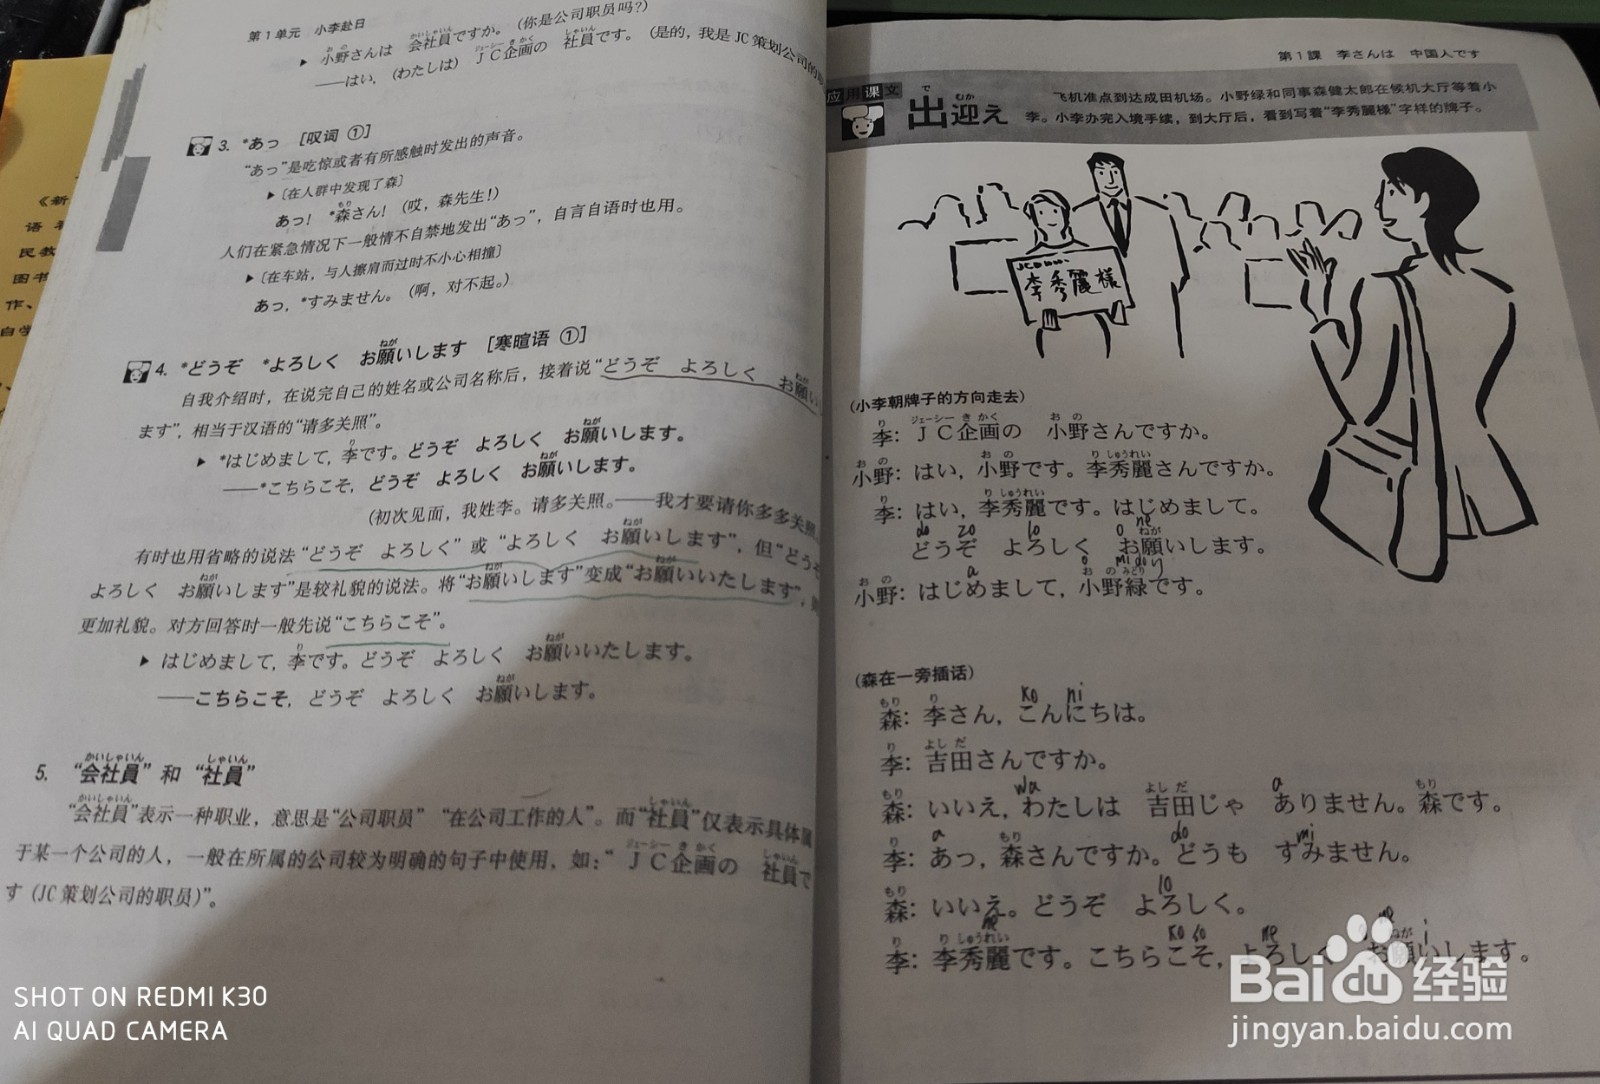 第1单元 小李赴日
▶ 小野さんは 会社員ですか。（你是公司职员吗？）
——はい，（わたしは） JC企画の 社員です。（是的，我是JC策划公司的职
3. *あっ ［叹词 ①］
“あっ”是吃惊或者有所感触时发出的声音。
▶〔在人群中发现了森〕
あっ！ *森さん！（哎，森先生！）
人们在紧急情况下一般情不自禁地发出“あっ”，自言自语时也用。
▶〔在车站，与人擦肩而过时不小心相撞〕
あっ，*すみません。（啊，对不起。）
4. *どうぞ *よろしく お願いします ［寒暄语 ①］
自我介绍时，在说完自己的姓名或公司名称后，接着说“どうぞ よろしく お願い
ます”，相当于汉语的“请多关照”。
▶ *はじめまして，李です。どうぞ よろしく お願いします。
——*こちらこそ，どうぞ よろしく お願いします。
（初次见面，我姓李。请多关照。——我才要请你多多关照
有时也用省略的说法“どうぞ よろしく”或“よろしく お願いします”，但“どうぞ
よろしく お願いします”是较礼貌的说法。将“お願いします”变成“お願いいたします”，
更加礼貌。对方回答时一般先说“こちらこそ”。
▶ はじめまして，李です。どうぞ よろしく お願いいたします。
——こちらこそ，どうぞ よろしく お願いします。
5. “会社員”和“社員”
“会社員”表示一种职业，意思是“公司职员”“在公司工作的人”。而“社員”仅表示具体属
于某一个公司的人，一般在所属的公司较为明确的句子中使用，如：“JC企画の 社員で
す（JC策划公司的职员）”。
SHOT ON REDMI K30
AI QUAD CAMERA
第1課 李さんは 中国人です
应用课文
出迎え
飞机准点到达成田机场。小野绿和同事森健太郎在候机大厅等着小
李。小李办完入境手续，到大厅后，看到写着“李秀麗様”字样的牌子。
李秀麗様
（小李朝牌子的方向走去）
李：JC企画の 小野さんですか。
小野：はい，小野です。李秀麗さんですか。
李：はい，李秀麗です。はじめまして。
do zo lo o ne
どうぞ よろしく お願いします。
a o midori
小野：はじめまして，小野緑です。
（森在一旁插话）
ko ni
森：李さん，こんにちは。
李：吉田さんですか。
wa a
森：いいえ，わたしは 吉田じゃ ありません。森です。
a do mi
李：あっ，森さんですか。どうも すみません。
lo
森：いいえ。どうぞ よろしく。
李：李秀麗です。こちらこそ，よろしく お願いします。
Baidu 经验
jingyan.baidu.com